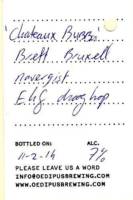 "Chateaux Bubbs"
Brett Bruxell
navergist
EHG dry hop
BOTTLED ON: ALC.
11-2-14 7%
PLEASE LEAVE US A WORD
INFO@OEDIPUSBREWING.COM
WWW.OEDIPUSBREWING.COM